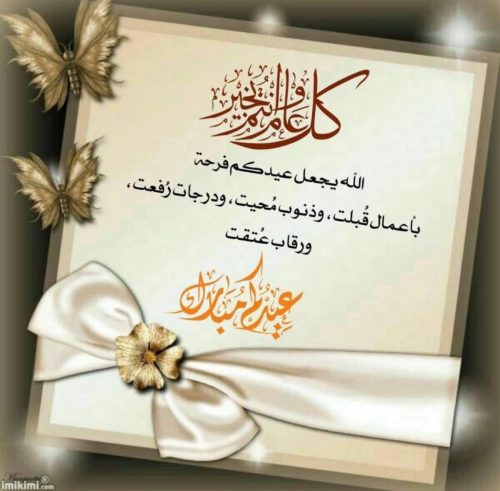 كل عام وانتم بخير
الله يجعل عيدكم فرحة
بأعمال قُبلت، وذنوب مُحيت، ودرجات رُفعت،
ورقاب عُتقت
عيدكم مُبارك
imikimi.com